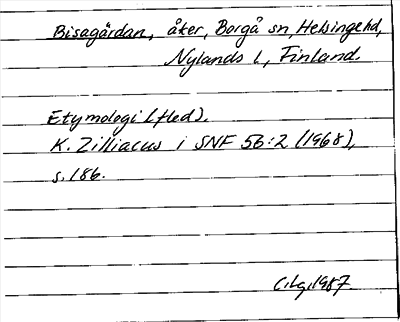 Bisagårdan, åker, Borgå sn, Helsinge hd,
Nylands l, Finland.
Etymologi (fled).
K. Zilliacus i SNF 56:2 (1968),
s. 186.
C.Lg.1987